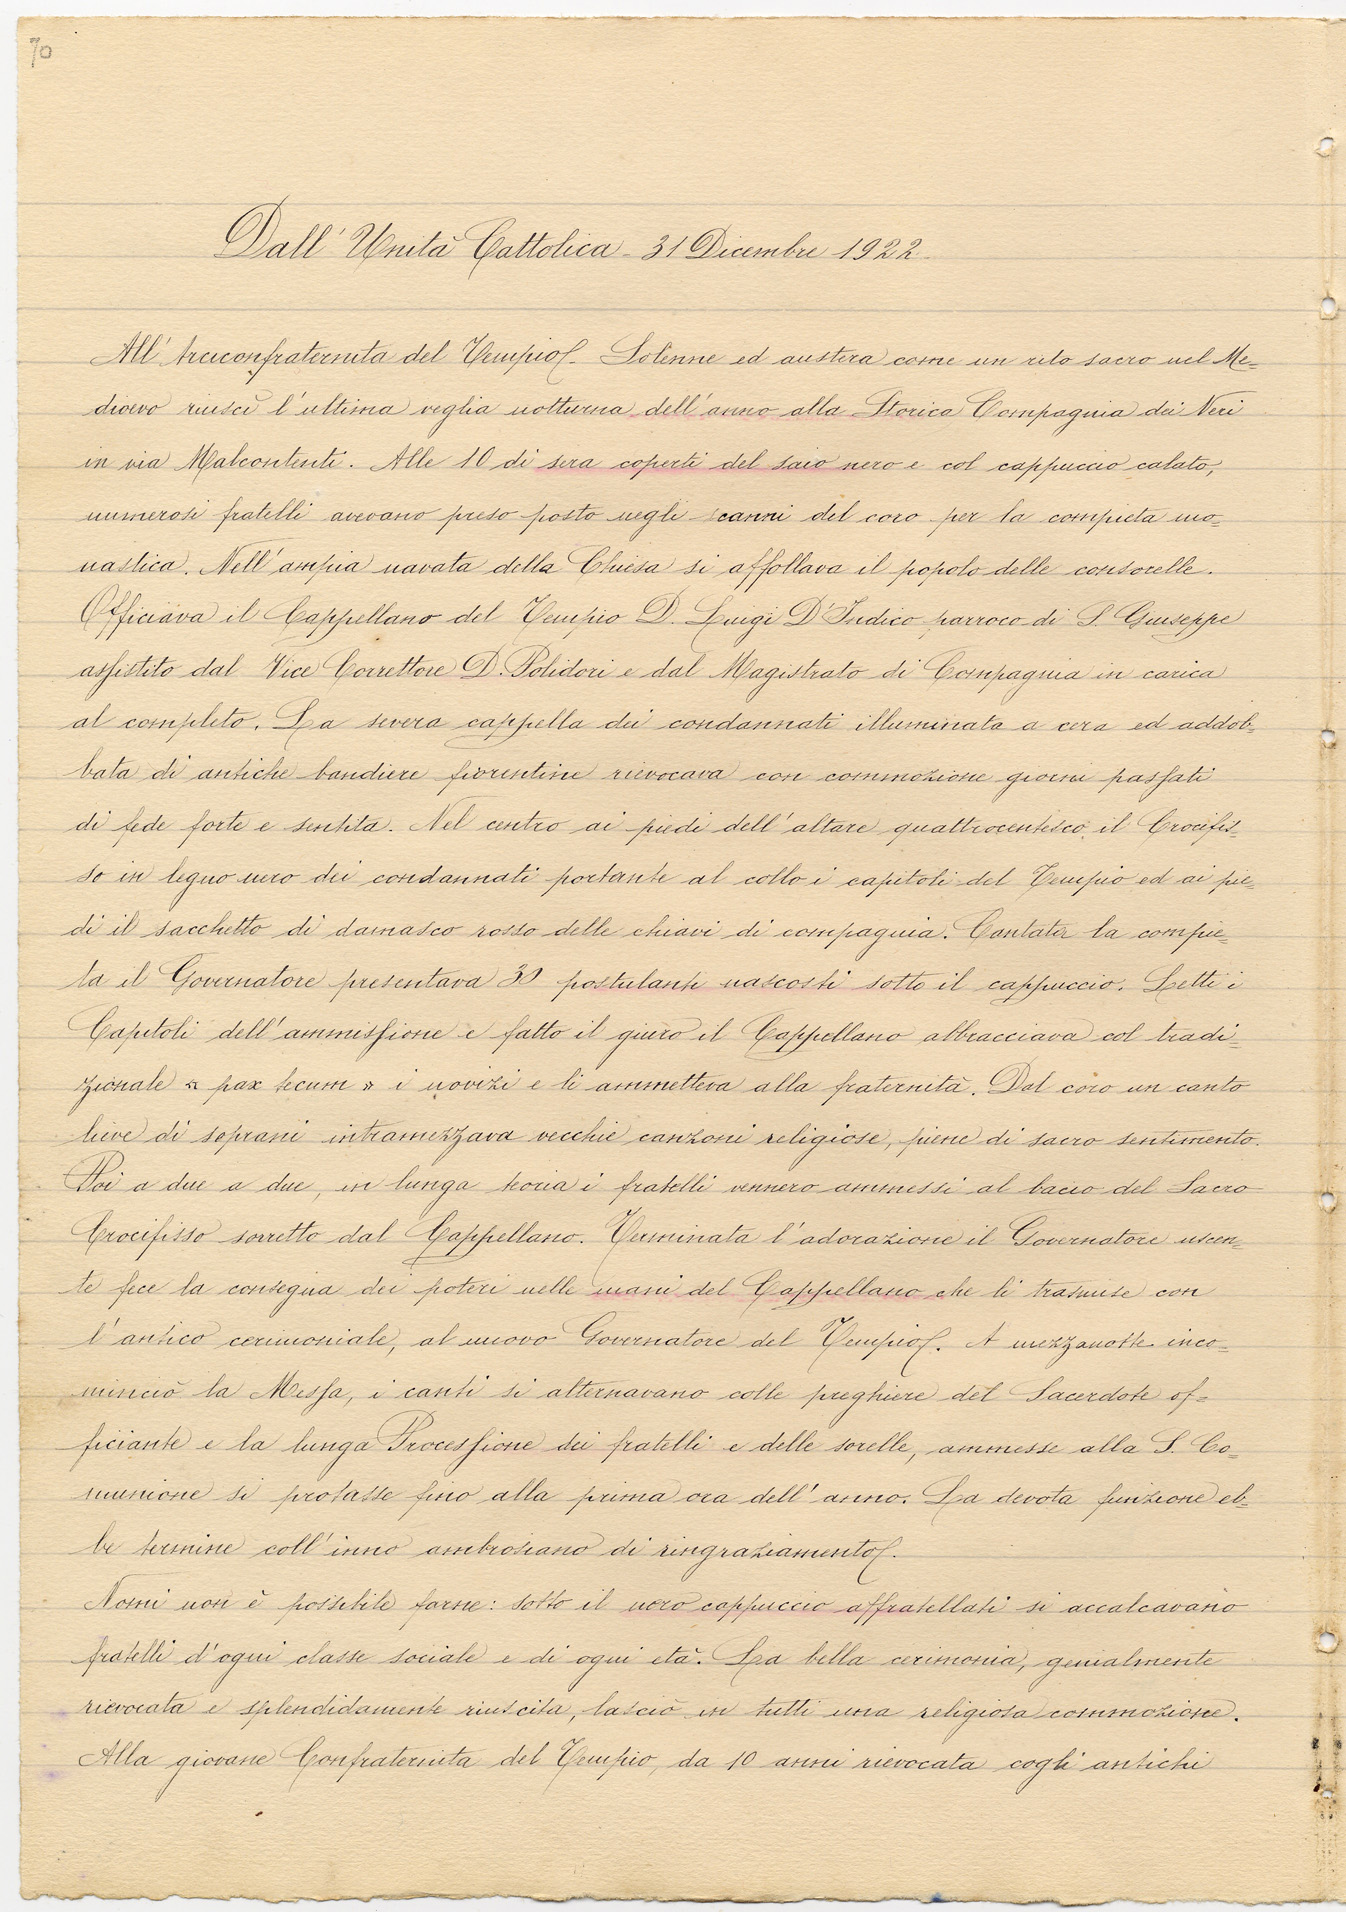 70
Dall'Unità Cattolica - 31 Dicembre 1922 -
All'Arciconfraternita del Tempio. Solenne ed austera come un rito sacro nel Me=
dioevo riuscì l'ultima veglia notturna dell'anno alla Storica Compagnia dei Neri
in via Malcontenti. Alle 10 di sera coperti del saio nero e col cappuccio calato,
numerosi fratelli avevano preso posto negli scanni del coro per la compieta mo=
nastica. Nell'ampia navata della Chiesa si affollava il popolo delle consorelle.
Officiava il Cappellano del Tempio D. Luigi D'Indico parroco di S. Giuseppe
assistito dal Vice Correttore D. Polidori e dal Magistrato di Compagnia in carica
al completo. La severa cappella dei condannati illuminata a cera ed addob=
bata di antiche bandiere fiorentine rievocava con commozione giorni passati
di fede forte e sentita. Nel centro ai piedi dell'altare quattrocentesco, il Crocifis=
so in legno nero dei condannati portante al collo i capitoli del Tempio ed ai pie=
di il sacchetto di damasco rosso delle chiavi di compagnia. Cantata la compie=
ta il Governatore presentava 30 postulanti nascosti sotto il cappuccio. Letti i
Capitoli dell'ammissione e fatto il giuro il Cappellano abbracciava col tradi=
zionale « pax tecum » i novizi e li ammetteva alla fraternità. Dal coro un canto
lieve di soprani intramezzava vecchie canzoni religiose, piene di sacro sentimento.
Poi a due a due, in lunga teoria i fratelli vennero ammessi al bacio del Sacro
Crocifisso sorretto dal Cappellano. Terminata l'adorazione il Governatore uscen=
te fece la consegna dei poteri nelle mani del Cappellano che li trasmise con
l'antico cerimoniale, al nuovo Governatore del Tempio. A mezzanotte inco=
minciò la Messa, i canti si alternavano colle preghiere del Sacerdote of=
ficiante e la lunga Processione dei fratelli e delle sorelle, ammesse alla S. Co=
munione si protasse fino alla prima ora dell'anno. La devota funzione eb=
be termine coll'inno ambrosiano di ringraziamento.
Nomi non è possibile farne: sotto il nero cappuccio affratellati si accalcavano
fratelli d'ogni classe sociale e di ogni età. La bella cerimonia, genialmente
rievocata e splendidamente riuscita, lasciò in tutti una religiosa commozione.
Alla giovane Confraternita del Tempio, da 10 anni rievocata cogli antichi